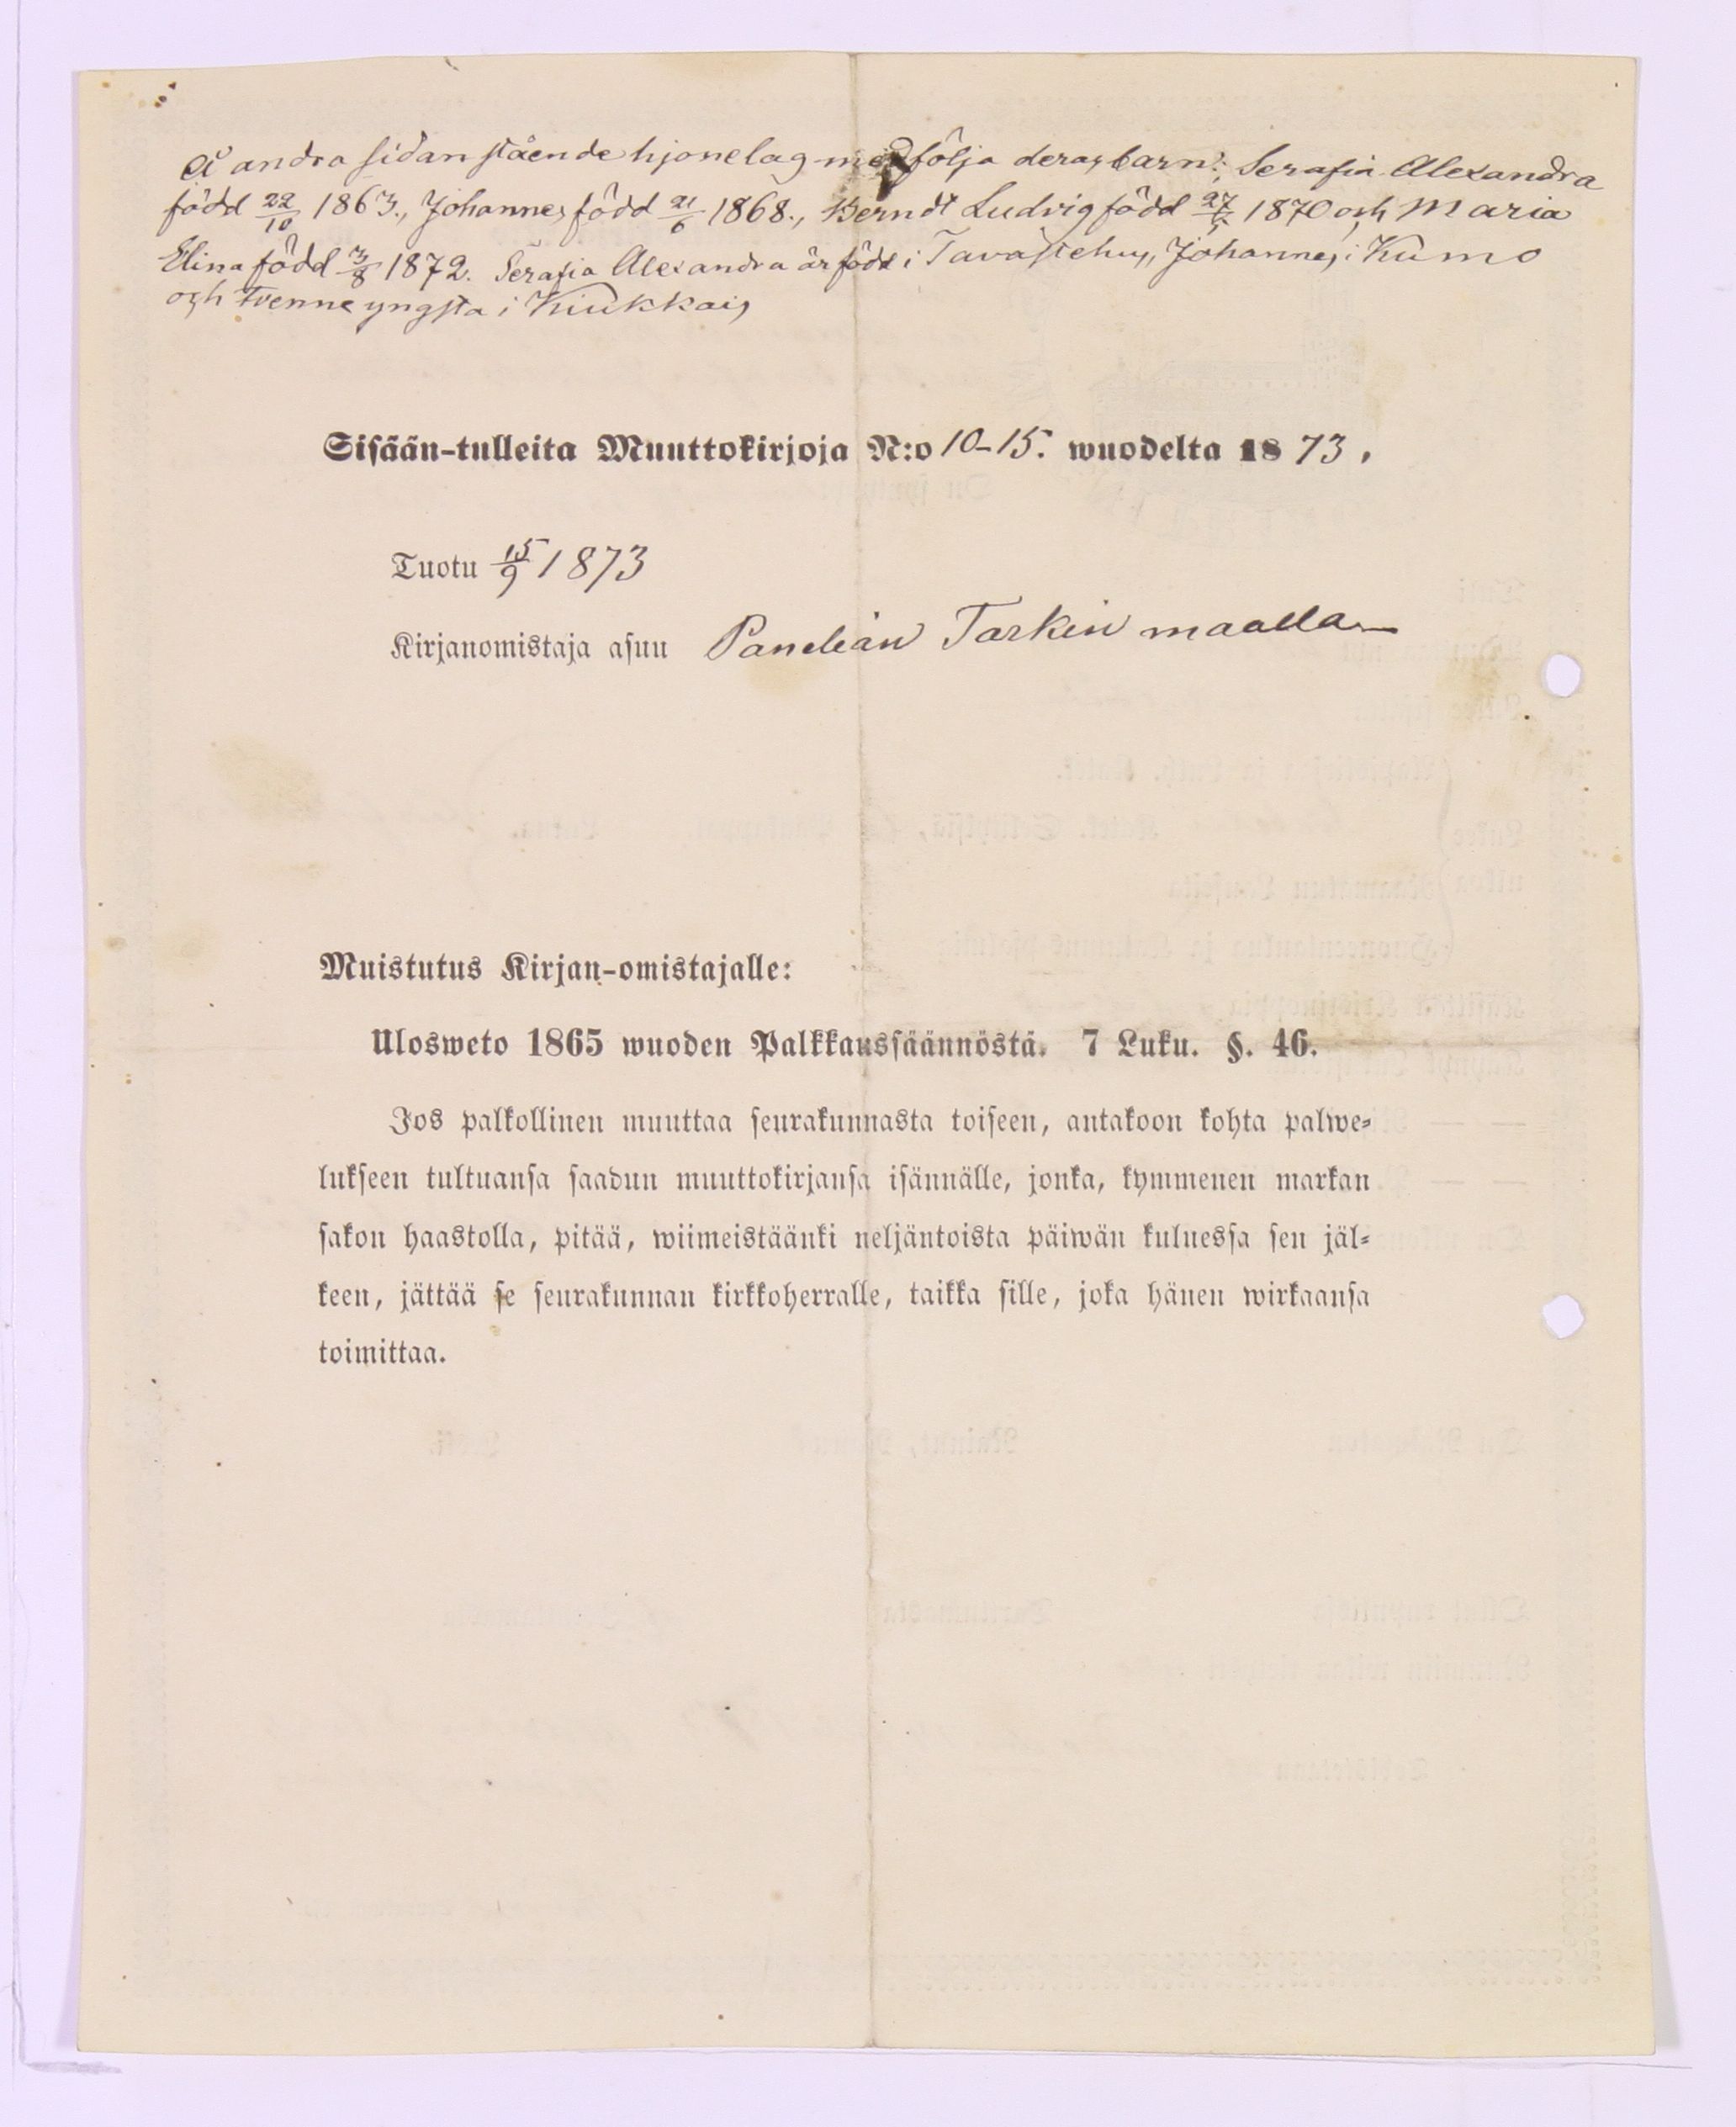 Å andra sidan stående hjonelag medfölja deras barn: Serafia Alexandra
född 22/10 1863., Johannes född 21/6 1868., Berndt Ludvig född 1870 och Maria
Elina född 3/8 1872. Serafia Alexandra är född i Tavastehus, Johannes i Kumo
och tvenne yngsta i Kiukkais
Sisään-tulleita Muuttokirjoja N:o 10-15. wuodelta 1873.
Tuotu 15/9 1873
Kirjanomistaja asuu Panelian Tarkin maalla
Muistutus Kirjan-omistajalle:
Ulosweto 1865 wuoden Palkkaussäännöstä. 7 Luku. §. 46.
Jos palkollinen muuttaa seurakunnasta toiseen, antakoon kohta palwe-
lukseen tultuansa saadun muuttokirjansa isännälle, jonka, kymmenen markan
sakon haastolla, pitää, wiimeistäänki neljäntoista päiwän kuluessa sen jäl-
keen, jättää se seurakunnan kirkkoherralle, taikka sille, joka hänen wirkaansa
toimittaa.